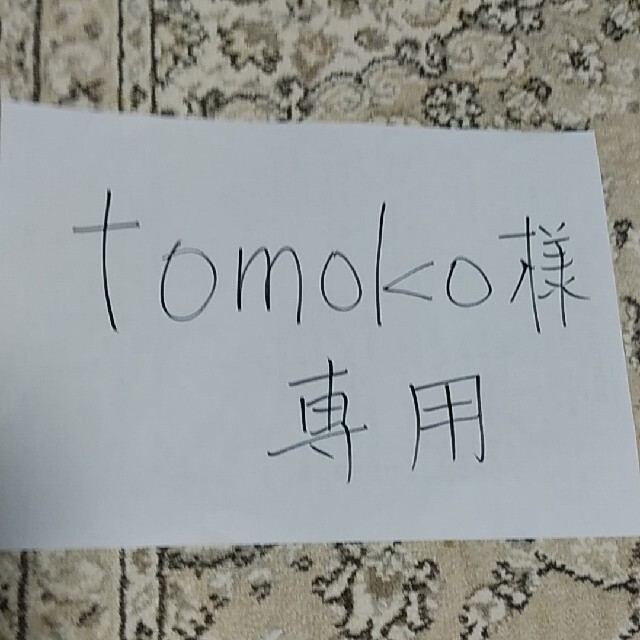 tomoko様
専用